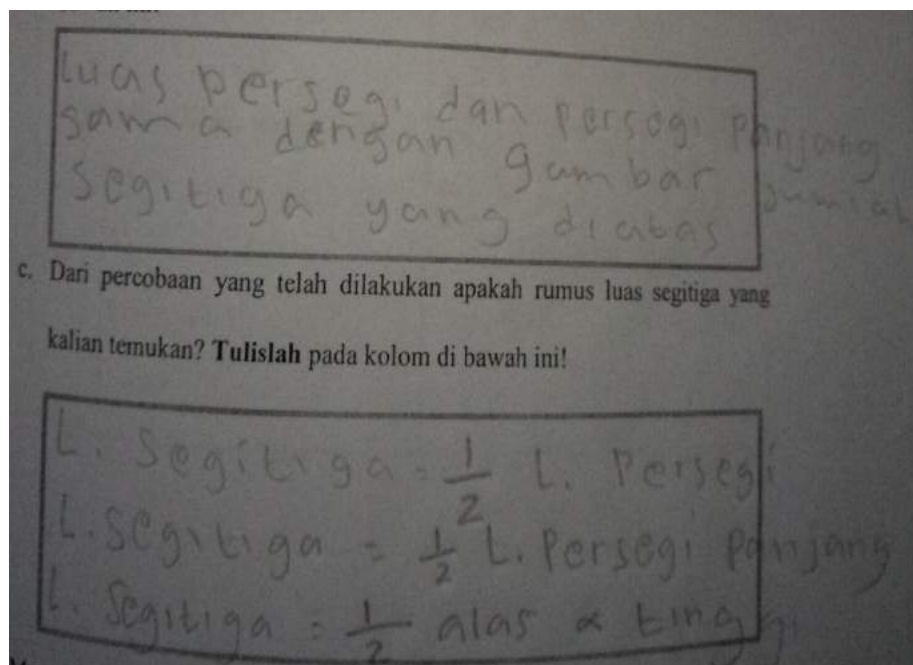 Luas persegi dan persegi panjang
sama dengan gambar jumlah
segitiga yang diatas
c. Dari percobaan yang telah dilakukan apakah rumus luas segitiga yang
kalian temukan? Tulislah pada kolom di bawah ini!
L. Segitiga = 1/2 L. Persegi
L. Segitiga = 1/2 L. Persegi panjang
L. Segitiga = 1/2 alas x tinggi